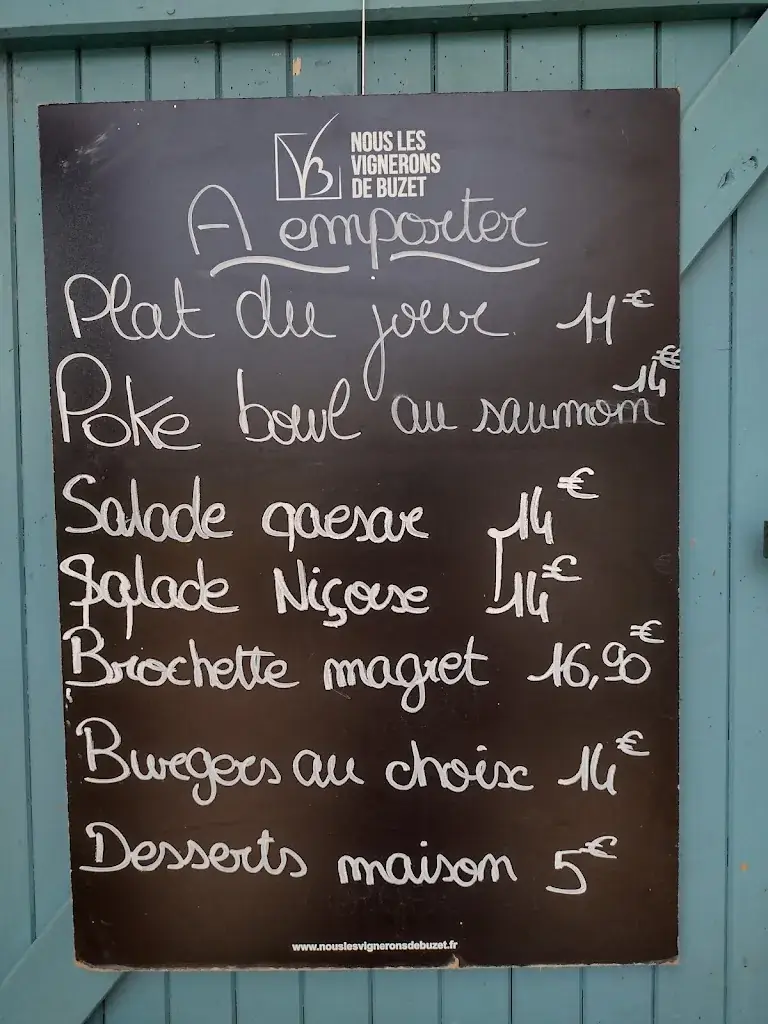 NOUS LES
VIGNERONS
DE BUZET
A emporter
Plat du jour 11€
Poke bowl au saumon 14€
Salade qaesar 14€
Salade Niçoise 14€
Brochette magret 16,90€
Burgers au choix 14€
Desserts maison 5€
www.nouslesvigneronsdebuzet.fr